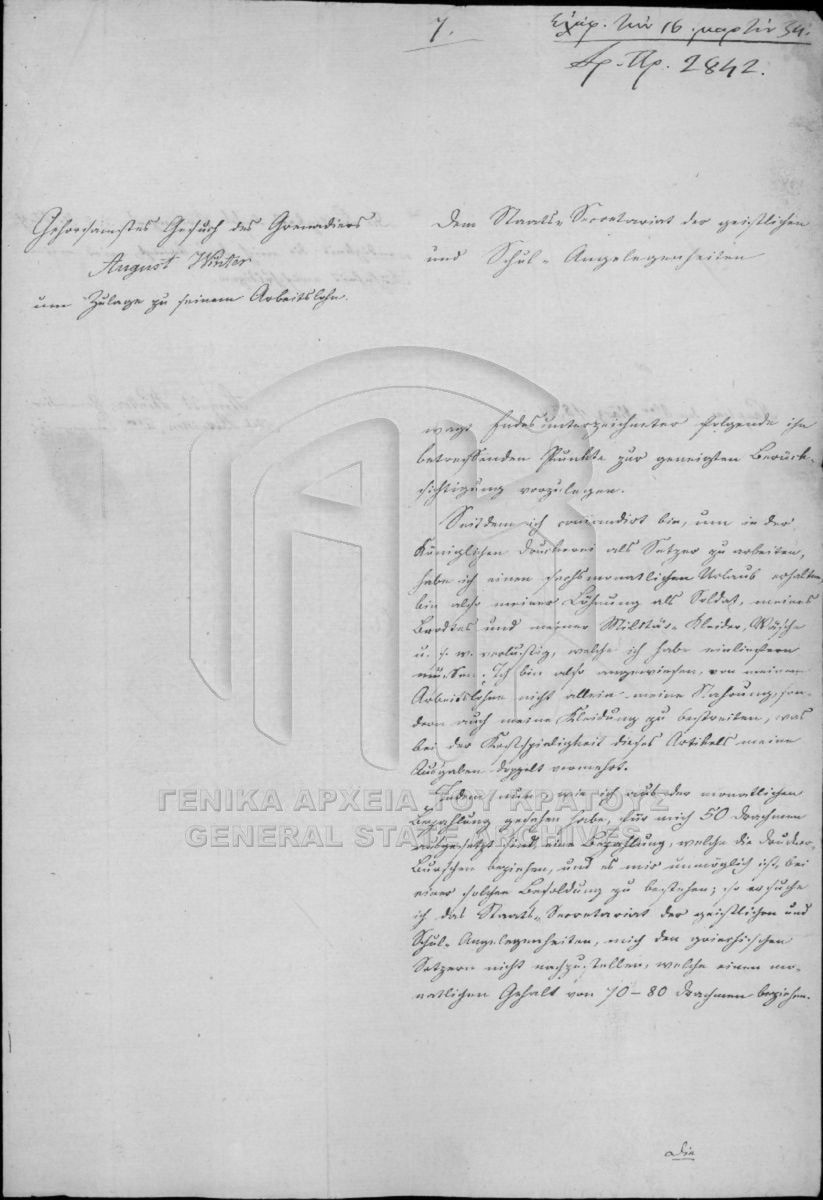 7.
16 μαρτίου 34.
Αρ. Πρ. 2842.
Gehorsamstes Gesuch des Grenadiers
August Winter
um Zulage zu seinem Arbeitslohn.
Dem Staats-Secretariat der geistlichen
und Schul-Angelegenheiten
wagt Endesunterzeichneter folgende ihn
betreffenden Punkte zur geneigten Berück-
sichtigung vorzulegen.
Seitdem ich comandirt bin, um in der
Königlichen Druckerei als Setzer zu arbeiten,
habe ich einen sechsmonatlichen Urlaub erhalten,
bin also meiner Löhnung als Soldat, meines
Brodtes und meiner Militär-Kleider, Wäsche
u. s. w. verlustig, welche ich habe einliefern
müssen. Ich bin also angewiesen, von meinem
Arbeitslohne nicht allein meine Nahrung, son-
dern auch meine Kleidung zu bestreiten, was
bei der Kostspieligkeit dieses Artikels meine
Ausgaben doppelt vermehrt.
Indem nun, wie ich aus der monatlichen
Bezahlung gesehen habe, für mich 50 Drachmen
ausgesetzt sind, eine Bezahlung, welche die Drucker-
Burschen beziehen, und es mir unmöglich ist, bei
einer solchen Besoldung zu bestehen; so ersuche
ich das Staats-Secretariat der geistlichen und
Schul-Angelegenheiten, mich den griechischen
Setzern nicht nachzustellen, welche einen mo-
natlichen Gehalt von 70-80 Drachmen beziehen.
Die
ΓΕΝΙΚΑ ΑΡΧΕΙΑ ΤΟΥ ΚΡΑΤΟΥΣ
GENERAL STATE ARCHIVES